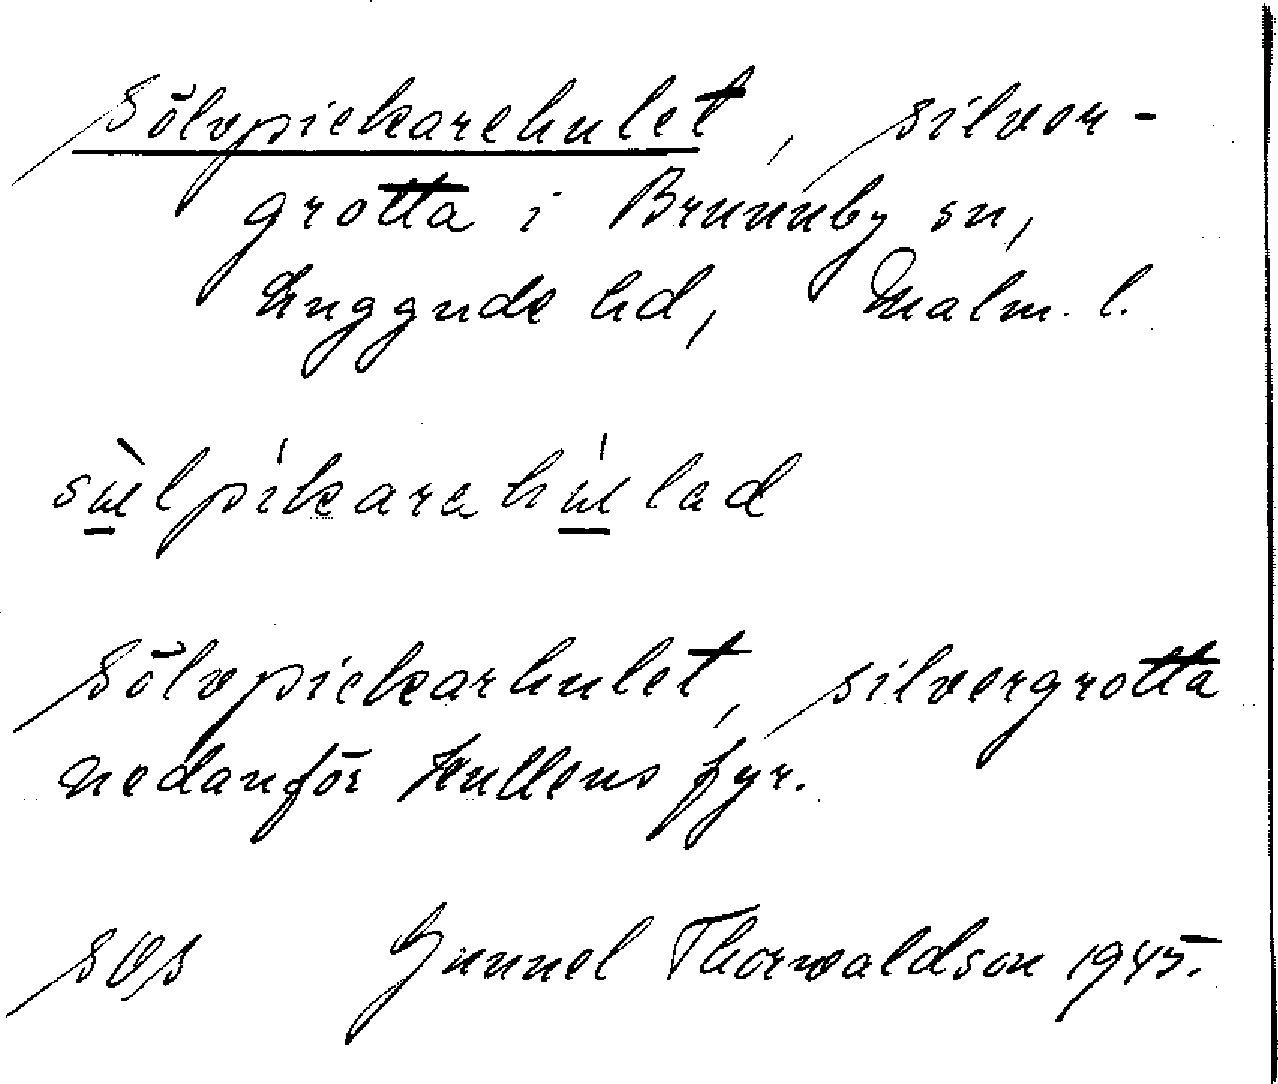 Sölvpickarehulet, silver-
grotta i Brunnby sn,
Luggude hd, Malm. l.
Sölvpickarhulet, silvergrotta
nedanför Kullens fyr.
SOS Gunnel Thorwaldson 1945.